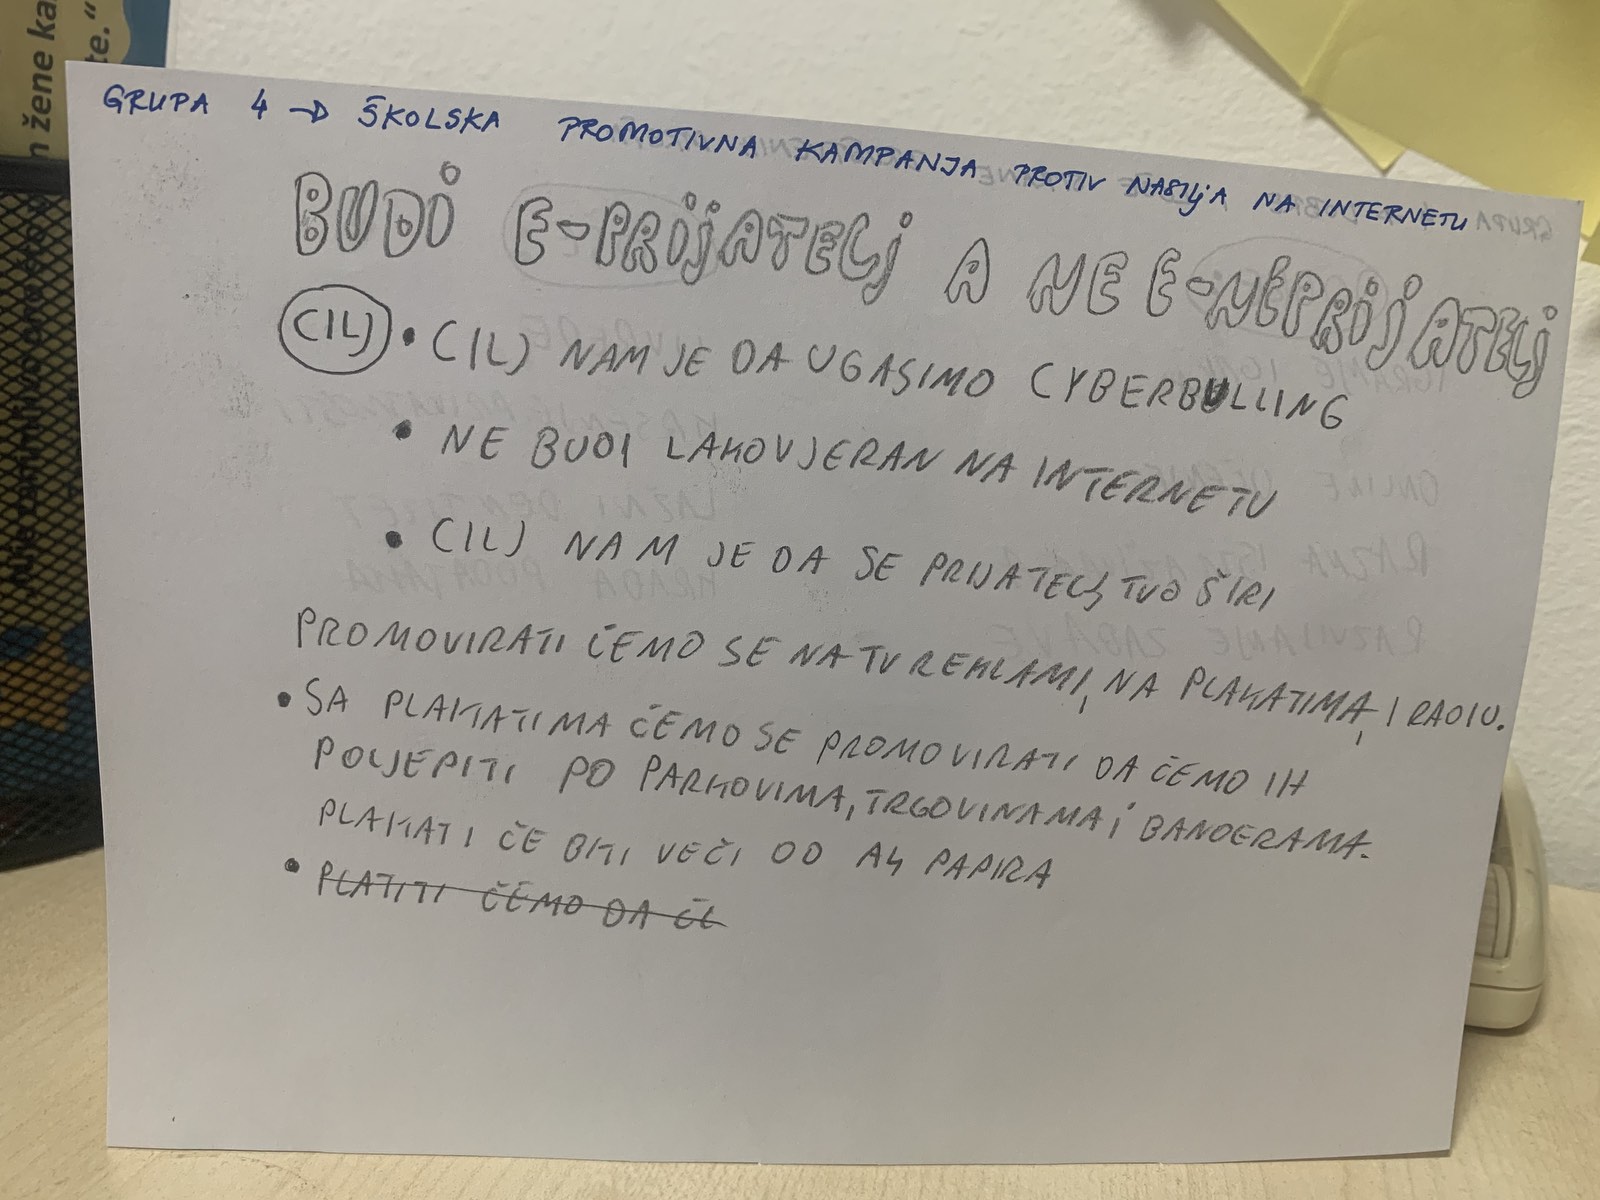 n žene ka
te.“
GRUPA 4 → ŠKOLSKA PROMOTIVNA KAMPANJA PROTIV NASILJA NA INTERNETU
BUDI E-PRIJATELJ A NE E-NEPRIJATELJ
CILJ • CILJ NAM JE DA UGASIMO CYBERBULLING
• NE BUDI LAKOVJERAN NA INTERNETU
• CILJ NAM JE DA SE PRIJATELJTVO ŠIRI
PROMOVIRATI ČEMO SE NA TV REKLAMI, NA PLAKATIMA, I RADIU.
• SA PLAKATIMA ČEMO SE PROMOVIRATI DA ČEMO IH
POLJEPITI PO PARKOVIMA, TRGOVINAMA I BANDERAMA.
PLAKATI ČE BITI VEČI OD A4 PAPIRA
• PLATITI ČEMO DA ČE